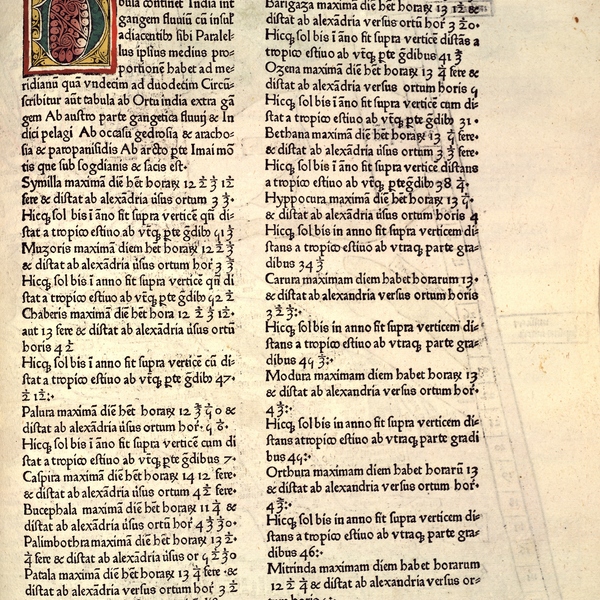 bula continet India int
gangem fluuiū cū insul'
adiacentib͡o sibi Paralel-
lus ipsius medius pro-
portionē habet ad me-
ridianū quā vndecim ad duodecim Circū-
scribitur aūt tabula ab Ortu india extra gā
gem Ab austro parte gangetica fluuij & In
dici pelagi Ab occasu gedrosia & aracho-
sia & paropanisidis Ab arcto pte Imai mō
tis que sub sogdianis & sacis est·
Symilla maximā diē hēt horaꝝ 12
fere & distat ab alexādria ūsus ortum 3
Hicꝗ sol bis ī āno fit supra verticē qn̄ di-
stat a tropico estiuo ab vt̄qꝫ pte g̃dibꝫ
Muzoris maximā diē hēt horaꝝ 12
& distat ab alexādria ūsus ortum hor̄ 3
Hicꝗ sol bis ī āno fit supra verticē qn̄ di
stat a tropico estiuo ab vt̄qꝫ pte g̃dibꝫ
Chaberis maximā diē hēt hora 12
aut 13 fere & distat ab alexādria ūsus ortū
horis 4
Hicꝗ sol bis ī anno fit supra verticē cū di-
stat a tropico estiuo ab vt̄qꝫ pte g̃dibꝫ 47·
Palura maximā diē hēt horaꝝ 12
distat ab alexādria ūsus ortum hor·
Hicꝗ sol bis ī āno fit supra verticē cum di
stat a tropico estiuo ab vt̄qꝫ pte g̃dibus 7·
Caspira maximā diē hēt horaꝝ 14 12 fere·
& distat ab alexādria ūsus ortum 4 fere·
Bucephala maximā diē hēt horaꝝ
& distat ab alexādria ūsus ortū hor̄
Palimbothra maximā diē hēt horaꝝ 13
fere & distat ab alexādria ūsus or
Patala maximā diē hēt horaꝝ 13 fere· &
distat ab alexādria ūsus ortum hor̄ 3
Barigaza maximā diē hēt horaꝝ 13 &
distat ab alexādria versus ortū hor̄ 3
Hicꝗ sol bis ī āno fit supra verticē distās a
tropico estiuo ab vt̄qꝫ pte g̃dibus 41
Ozena maximā diē hēt horaꝝ 13 fere &
distat ab alexādria versus ortum horis
Hicꝗ sol bis ī āno fit supra verticē cum di-
stat a tropico estiuo ab vt̄qꝫ pte g̃dibꝫ 31·
Bethana maximā diē hēt horaꝝ 13 fere·
& distat ab alexādria ūsus ortum 3 fere·
Hicꝗ sol bis ī āno fit supra verticē distans
a tropico estiuo ab vt̄qꝫ pte g̃dibꝫ 38
Hyppocura maximā diē hēt horaꝝ 13
& distat ab alexādria ūsus ortum horis 4
Hicꝗ sol bis in anno fit supra verticē di-
stans a tropico estiuo ab vtraqꝫ parte gra-
dibus 34
Carura maximam diem habet horarum 13·
& distat ab alexandria versus ortum horis
3
Hicꝗ sol bis in anno fit supra verticem di-
stans a tropico estiuo ab vtraqꝫ parte gra-
dibus
Modura maximam diem habet horaꝝ 13
& distat ab alexandria versus ortum hor·
4
Hicꝗ sol bis in anno fit supra verticem di-
stans atropico estiuo ab vtraqꝫ parte gradi
bus
Orthura maximam diem habet horarū 13
& distat ab alexandria versus ortum hor̄·
4
Hicꝗ sol bis in anno fit supra verticem di-
stans a tropico estiuo ab vtraqꝫ parte gra-
dibus 46:·
Mitrinda maximam diem habet horarum
12 & distat ab alexandria versus or-